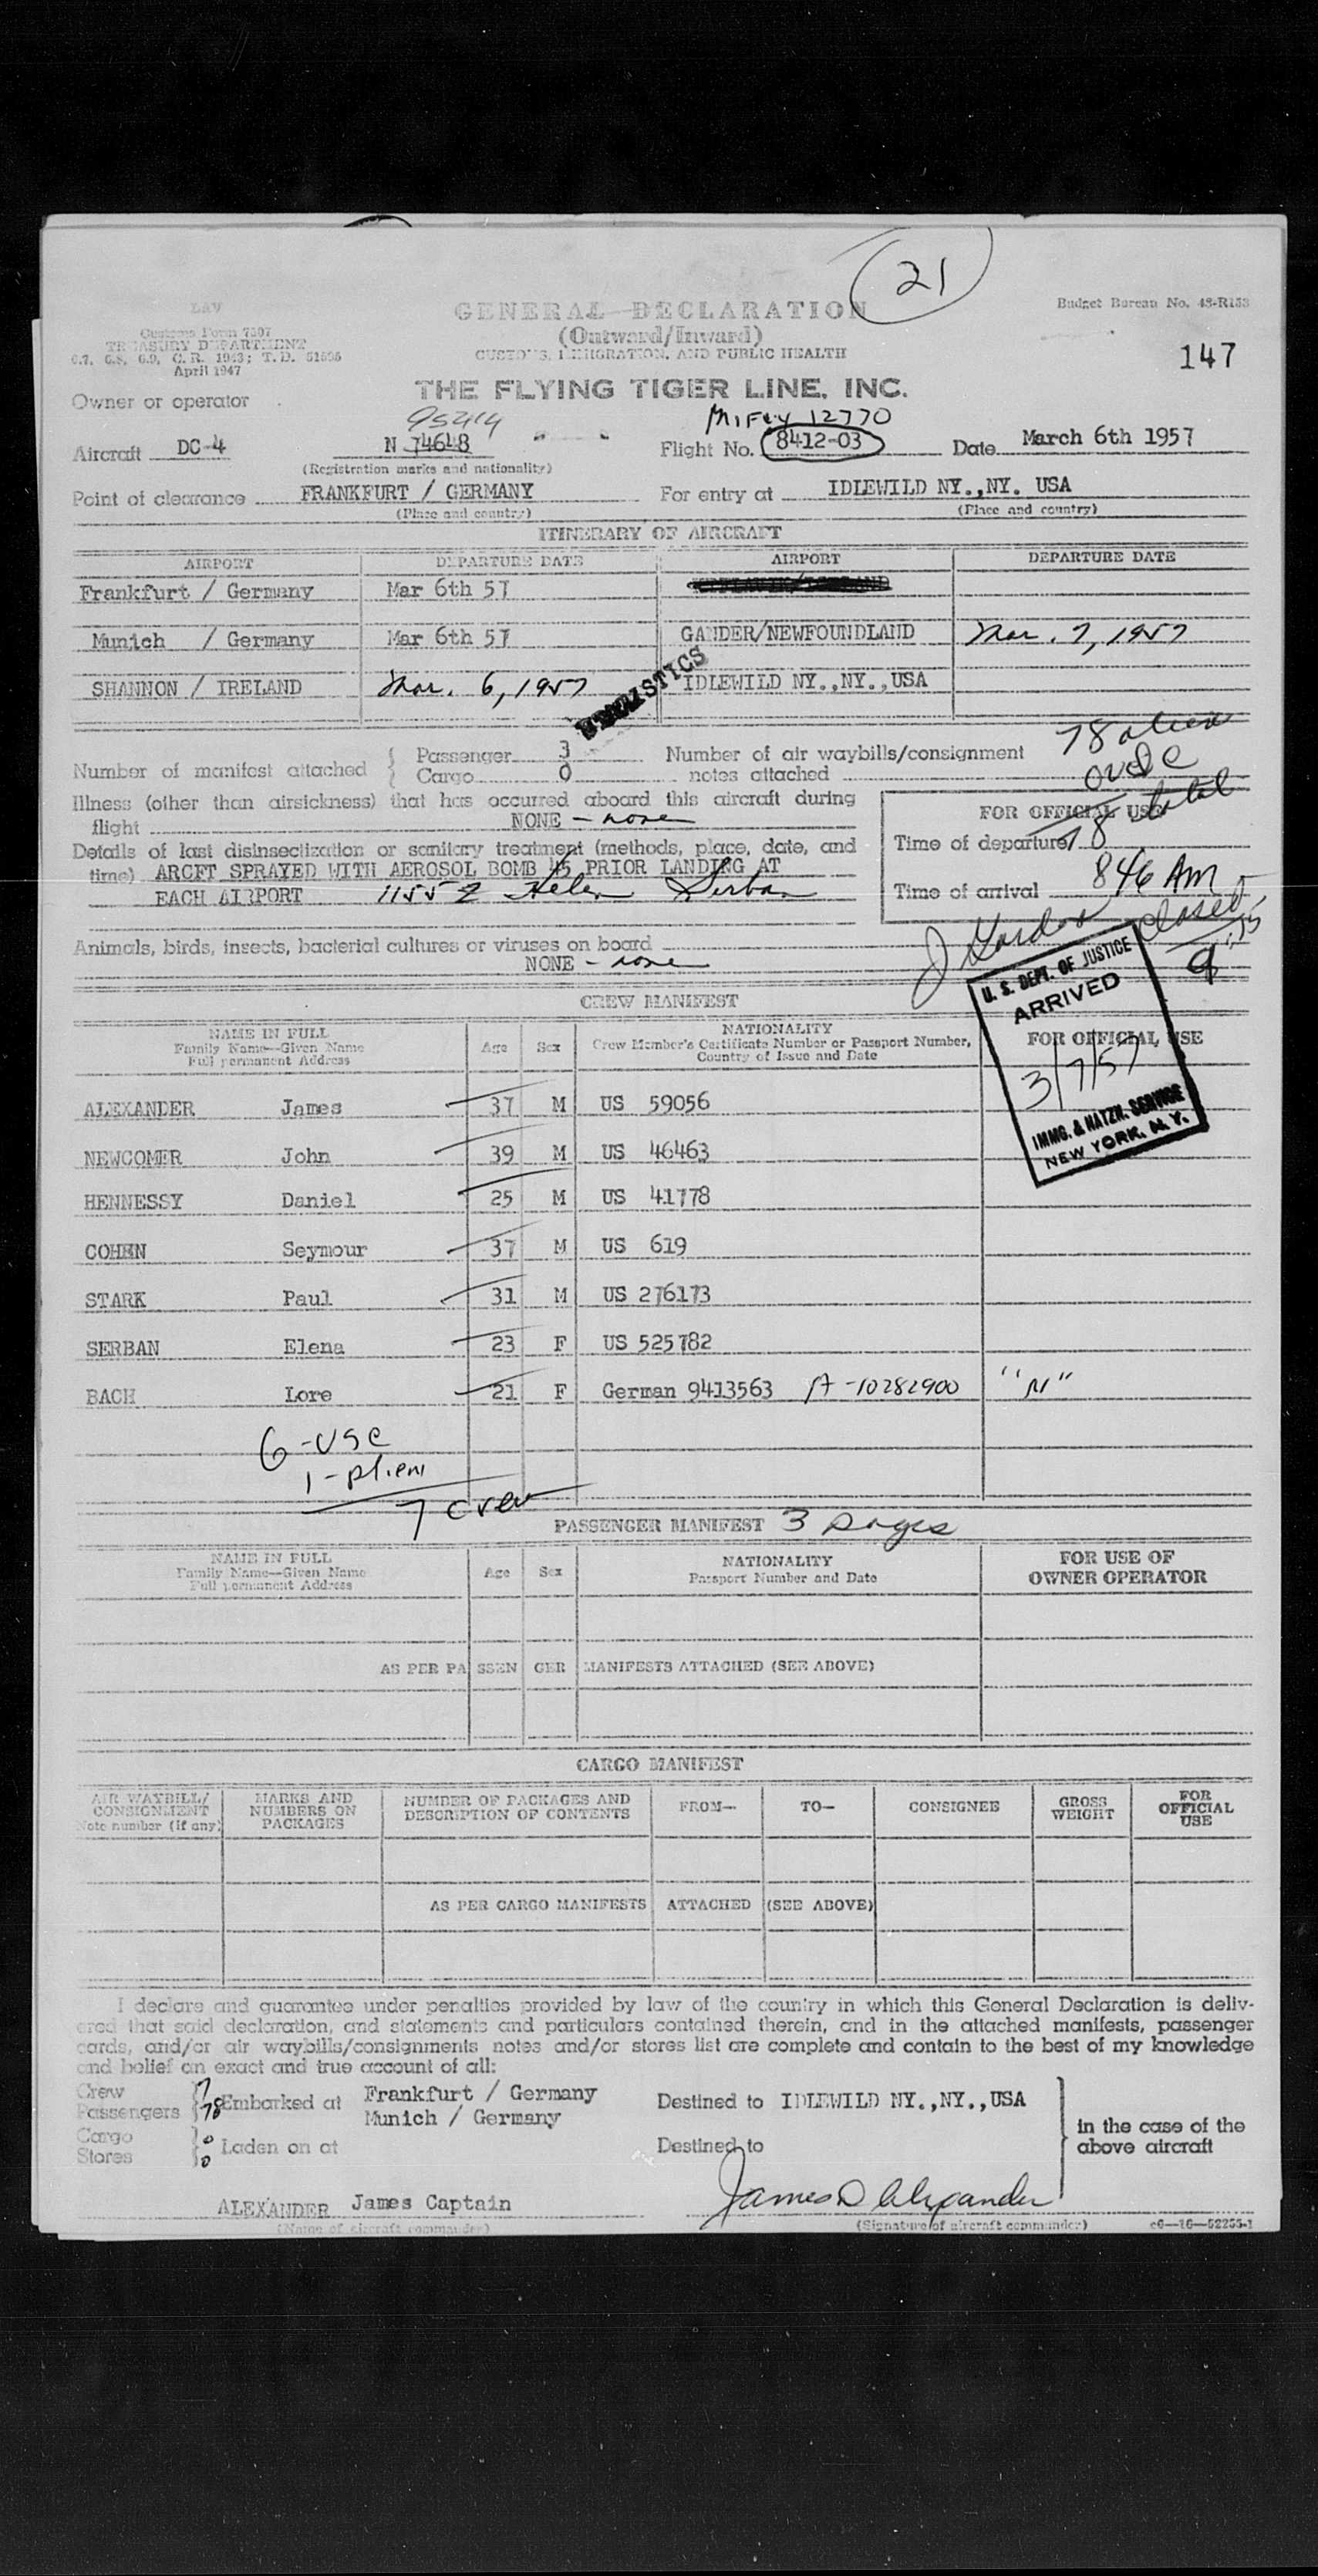 21
LAV
GENERAL DECLARATION
Budget Bureau No. 48-R183
Customs Form 7507
(Outward/Inward)
TREASURY DEPARTMENT
CUSTOMS, IMMIGRATION, AND PUBLIC HEALTH
6.7, 6.8, 6.9, C. R. 1943; T. D. 51605
147
April 1947
THE FLYING TIGER LINE, INC.
Owner or operator
95414
12770
Aircraft DC-4 N 74648 Flight No. 8412-03 Date March 6th 1957
(Registration marks and nationality)
Point of clearance FRANKFURT / GERMANY For entry at IDLEWILD NY.,NY. USA
(Place and country) (Place and country)
ITINERARY OF AIRCRAFT
AIRPORT DEPARTURE DATE AIRPORT DEPARTURE DATE
Frankfurt / Germany Mar 6th 57
Munich / Germany Mar 6th 57 GANDER/NEWFOUNDLAND Mar. 7, 1957
SHANNON / IRELAND Mar. 6, 1957 IDLEWILD NY.,NY.,USA
STATISTICS
78 alien
Number of manifest attached { Passenger 3 Number of air waybills/consignment
Cargo 0 notes attached
0 USC
78 total
Illness (other than airsickness) that has occurred aboard this aircraft during
flight NONE - none
FOR OFFICIAL USE
Details of last disinsectization or sanitary treatment (methods, place, date, and
Time of departure
time) ARCFT SPRAYED WITH AEROSOL BOMB 45 PRIOR LANDING AT
EACH AIRPORT 11552 Helen Serban
Time of arrival 846 AM
closed
9:15
Animals, birds, insects, bacterial cultures or viruses on board
NONE - none
U. S. DEPT. OF JUSTICE
ARRIVED
3/7/57
IMMG. & NATZN. SERVICE
NEW YORK, N. Y.
CREW MANIFEST
NAME IN FULL NATIONALITY
Family Name—Given Name Age Sex Crew Member's Certificate Number or Passport Number, FOR OFFICIAL USE
Full permanent Address Country of Issue and Date
ALEXANDER James 37 M US 59056
NEWCOMER John 39 M US 46463
HENNESSY Daniel 25 M US 41778
COHEN Seymour 37 M US 619
STARK Paul 31 M US 276173
SERBAN Elena 23 F US 525782
BACH Lore 21 F German 9413563 A-10282900 "N"
6-USC
1-alien
7 crew
PASSENGER MANIFEST 3 pages
NAME IN FULL NATIONALITY FOR USE OF
Family Name—Given Name Age Sex Passport Number and Date OWNER OPERATOR
Full permanent Address
AS PER PASSENGER MANIFESTS ATTACHED (SEE ABOVE)
CARGO MANIFEST
AIR WAYBILL/ MARKS AND NUMBER OF PACKAGES AND FROM— TO— CONSIGNEE GROSS FOR
CONSIGNMENT NUMBERS ON DESCRIPTION OF CONTENTS WEIGHT OFFICIAL
Note number (if any) PACKAGES USE
AS PER CARGO MANIFESTS ATTACHED (SEE ABOVE)
I declare and guarantee under penalties provided by law of the country in which this General Declaration is deliv-
ered that said declaration, and statements and particulars contained therein, and in the attached manifests, passenger
cards, and/or air waybills/consignments notes and/or stores list are complete and contain to the best of my knowledge
and belief an exact and true account of all:
Crew 7
Passengers 78 Embarked at Frankfurt / Germany Destined to IDLEWILD NY.,NY.,USA
Munich / Germany
in the case of the
above aircraft
Cargo 0
Stores 0 Laden on at Destined to
ALEXANDER James Captain James D Alexander
(Name of aircraft commander) (Signature of aircraft commander) c6—16—52255-1